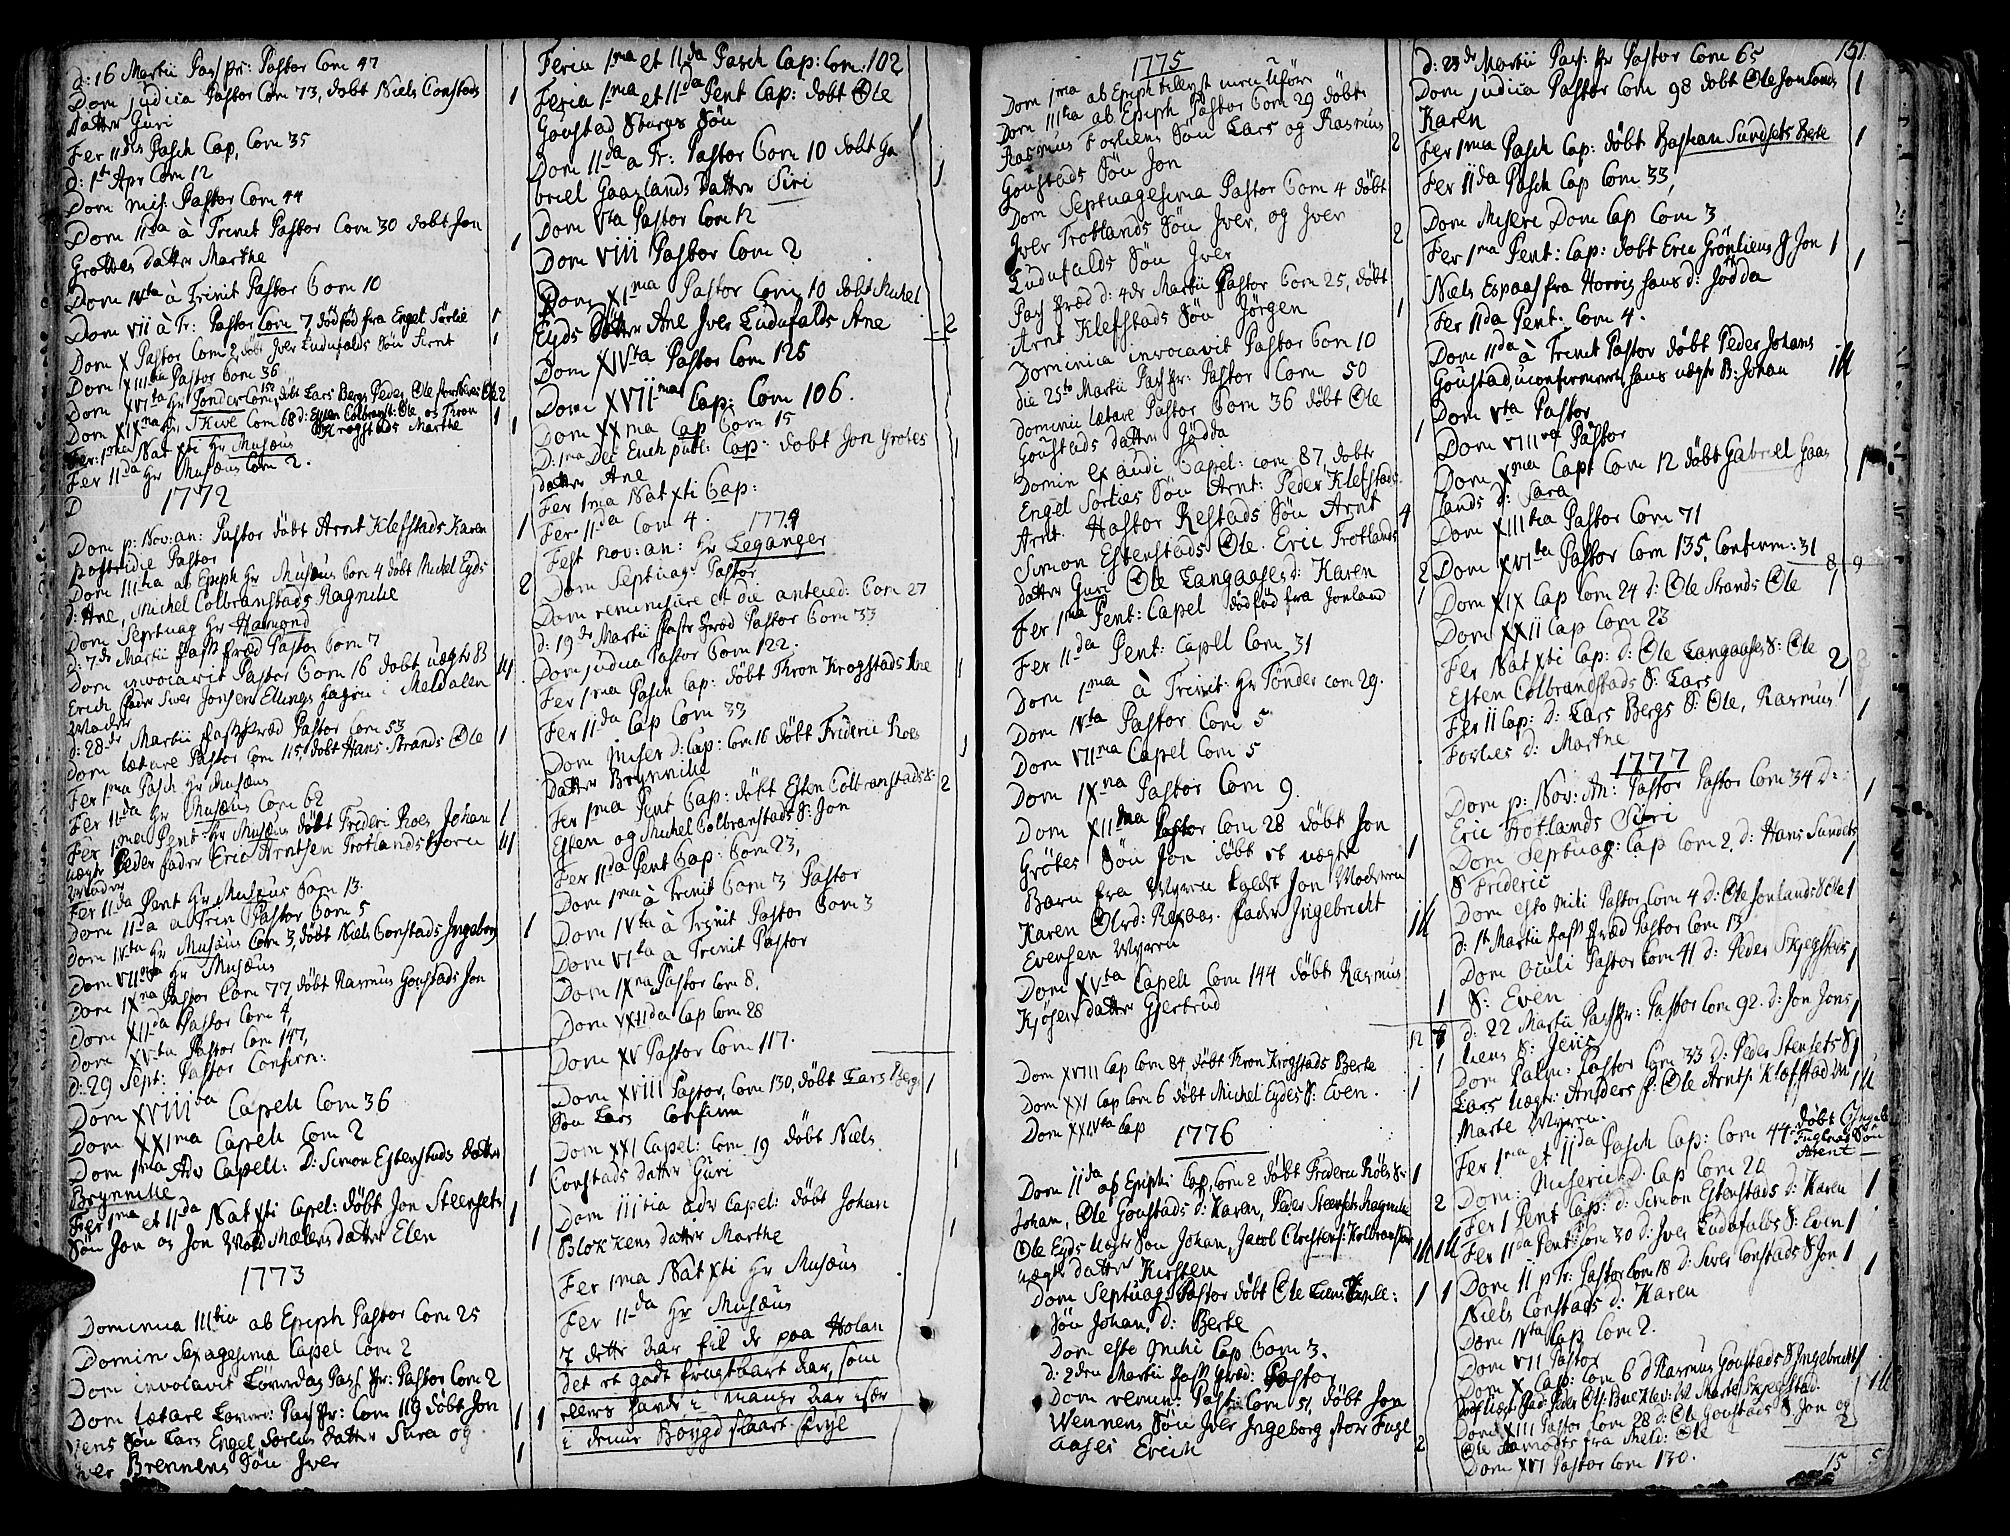 d: 16 Martii Pass pr: Pastor Com 47
Dom judica Pastor Com 73, døbt Niels Constads
datter Guri
Fer 11da Pasch Cap, Com 35
d: 1te Apr Com 12
Dom mis: Pastor Com 44
Dom 11da à Trinit Pastor Com 30 døbt Jon
Grøttes datter Marthe
Dom IVta à Trinit Pastor Com 10
Dom VII à Tr: Pastor Com 7 dødfød fra Engel Sørlie
Dom X Pastor Com 2 døbt Iver Ludufalds Søn Arnt
Dom XIIItia Pastor Com 36
Dom XVIta Hr Tønder Com 152, døbt Lars Bergs Peder, Ole
Dom XIXna Hr, Skive Com 68 d: Esten Colbranst: Ole og Thron
Krogstads Marthe
Fer: 1ma Nat xti Hr Musæus
Fer 11da Hr Musæus Com 2.
1772
Dom p: Nov: an: Pastor døbt Arnt Klefstads Karen
postridie Pastor
Dom IIItia ab Epiph Hr Musæus Com 4 døbt Michel Eyds
d: Ane, Michel Colbranstads Ragnilie
Dom Septuag Hr Hamond
d: 7de Martii Pass Præd Pastor Com 7
Dom invocavit Pastor Com 16 døbt uægte B
Erich fader Siver Jonsen Ellings hagen i Meldalen
Moder
d: 28de Martii Pass Præd Pastor Com 53
Dom lætare Pastor Com 115, døbt Hans Strands Ole
Fer 1ma Pasch Hr Musæus
Fer 11da Hr Musæus Com 62
Fer 1ma Pent Hr Musæus døbt Frideri Roes Johan
uægte Peder fader Eric Arntsen Trotlands
Moder
Fer 11da Pent Hr Musæus Com 13.
Dom 11da a Trin Pastor Com 5
Dom IVta Hr Musæus Com 3, døbt Niels Constads Ingeborg
Dom VIIma Hr Musæus
Dom IXna Pastor Com 77 døbt Rasmus Goustads Jon
Dom XIIda Pastor Com 4,
Dom XVta Pastor Com 147,
d: 29 Sept: Pastor Confirm:
Dom XVIIIda Capell Com 36
Dom XXIma Capell Com 2
Dom 1ma Adv Capell: D: Simon Estenstads datter
Brynnilie
Fer 1ma et 11da Nat xti Capel: døbt Jon Steensets
Søn Jon og Jon Mælens datter Elen
1773
Dominica IIItia ab Epiph Pastor Com 25
Domin Sexagesima Capel Com 2
Dom invocavit Løverdag Pass Pr: Pastor Com 2
Dom Lætare Løver: Pass Pr: Com 119 døbt Jon
Liens Søn Lars Engel Sørlies datter Sara og
Iver Brennens Søn Iver
Feria 1ma et 11da Pasch Cap: Com: 102
Feria 1ma et 11da Pent Cap: døbt Ole
Goustad Søn
Dom 11da a Tr: Pastor Com 10 døbt Ga
briel Gaaslands datter Siri
Dom Vta Pastor Com 12
Dom VIII Pastor Com 2
Dom XIma Pastor Com 10 døbt Michel
Eyds datter Ane Iver Ludufalds Ane
Dom XIVta Pastor Com 125
Dom XVIIma Cap: Com 106.
Dom XXma Cap Com 15
D: 1ma Dec Euch publ: Cap: døbt Jon Grøtes
datter Ane
Fer 1ma Nat xti Cap:
Fer: 11da Com 4.
1774
Fest nov: an: Hr Leganger
Dom Septuag: Pastor
Dom reminiscere et die anteced: Com 27
d: 19de Martii Pass Præd Pastor Com 33
Dom judica Pastor Com 122.
Fer 1ma Pasch Cap: døbt Thron Krogstads Ane
Fer 11da Cap Com 33
Dom Miser d: Cap: Com 16 døbt Frideric Roes
datter Brynnilie
Fer 1ma Pent Cap: døbt Esten Colbranstads S:
Esten og Michel Colbranstads S: Jon
Fer 11da Pent Cap: Com 23,
Dom 1ma à Trinit Com 3 Pastor
Dom IVta à Trinit Pastor Com 3
Dom VIta à Trinit Pastor
Dom IXna Pastor Com 8,
Dom XIIda Cap Com 28
Dom XV Pastor Com 117.
Dom XVIII Pastor, Com 130, døbt Lars Bergs
Søn Lars Confirm
Dom XXI Capel: Com 19 døbt Niels
Constads datter Guri
Dom IIItia adv Capel: døbt Johan
Blokkens datter Marthe
Fer 1ma Nat xti Hr Musæus
Fer 11da Hr Musæus
I dette Aar fik de paa Holan
det et godt frugtbart Aar, som
ellers havde i mange Aar især
i denne Bøygd slaaet feyl
1775
Dom 1ma ab Epiph
Dom IIItia ab Epiph Pastor Com 29 døbt
Rasmus Foslies Søn Lars og Rasmus
Goustads Søn Jon
Dom Septuagesima Pastor Com 4 døbt
Iver Trotlands Søn Iver, og Iver
Ludufalds Søn Iver
Pass Præd d: 4de Martii Pastor Com 25, døbt
Arnt Klefstads Søn Jørgen
Dominica invocavit Pastor Com 10
die 25to Martii Pass Pr: Pastor Com 50
Dominic lætare Pastor Com 36 døbt Ole
Goustads datter Jødda
Domin Exaudi Capel: com 87, døbt
Engel Sorlies Søn Arnt: Peder Klefstads
Arnt. Hastor Restads Søn Arnt
Simon Estenstads Ole. Eric Trotlands
datter Guri Ole Langaases d: Karen
Fer 1ma Pent: Capel dødfød fra Jonland
Fer 11da Pent: Capell Com 31
Dom 1ma à Trinit: Hr Tønder com 29.
Dom IVta Pastor Com 5
Dom VIIma Capel Com 5
Dom IXna Pastor Com 9.
Dom XIIma Pastor Com 28 døbt Jon
Grøtes Søn Jon døbt et uægte
Barn fra Myren kaldet Jon Moderen
Karen Olsd: Refsaas. fader Ingebricht
Evensen Myren
Dom XVta Capell Com 144 døbt Rasmus
datter Gjertrud
Dom XVIII Cap Com 84, døbt Thron Krogstads Berte
Dom XXI Cap Com 6 døbt Michel Eydes S: Even.
Dom XXIVta Cap
1776
Dom 11da ab Epiph: Cap, Com 2 døbt Frideric Røes S:
Johan, Ole Goustads d: Karen, Peder Steensets Ragnilie
Ole Eyds uægte Søn Johan, Jacob
uægte datter Kirsten
Dom Septuag: Pastor døbt Ole
Søn Johan, d: Berte
Dom esto mihi Cap Com 3.
d: 2den Martii Pass Præd: Pastor
Dom remin: Pastor: Com 51, døbt Jon
Wennens Søn Iver Ingeborg store Fugl
aases Erich
151
d: 23de Martii Pass: Pr Pastor Com 65
Dom judica Pastor Com 98 døbt Ole Jonlands
Karen
Fer 1ma Pasch Cap: døbt Bastian Sundsets Berte
Fer 11da Pasch Cap Com 33,
Dom Miseri Dom Cap Com 3
Fer 1ma Pent: Cap: døbt Eric Grønliens S Jon
Niels Espaas fra Horrig hans d: Jødda
Fer 11da Pent: Com 4.
Dom 11da à Trinit Pastor døbt Peder Johans
Goustad, uconfirmeret hans uægte B: Johan
Dom Vta Pastor
Dom VIIIva Pastor
Dom Xma Capt Com 12 døbt Gabriel Gaas
lands d: Sara
Dom XIIItia Pastor Com 71
Dom XVIta Pastor Com 135, Confirm: 31
Dom XIX Cap Com 24 d: Ole Strands Ole
Dom XXII Cap Com 23
Fer Nat xti Cap: d: Ole Langaases S: Ole
Esten Colbrandstads S: Lars
Fer II Cap: d: Lars Bergs S: Ole, Rasmus
Foslies d: Marthe
1777
Dom p: Nov: An: Pastor Com 34 d:
Eric Trotlands Siri
Dom Septuag: Cap Com 2, d: Hans Sundsets
S Frideric
Dom Esto mihi Pastor Com 4 d: Ole Jonlands Ole
d: 1te Martii Pass Præd Pastor Com 13
Dom Oculi Pastor Com 41 d: Peder Skjegstads
S: Even
d: 22 Martii Pass Pr: Pastor Com 92. d: Jon Jons
liens S: Jens
Dom Palm: Pastor Com 33 D: Peder Stensets S
Lars uægte: Anders F: Ole Arnts: Kleffstad M
Marte Myren.
Fer 1ma et 11da Pasch Cap: Com 44 døbt
Søn
Arent
Dom: Misericd: Cap Com 20
Fer 1 Pent Cap: d: Simon Estenstads d: Karen
Fer 11da Pent: Com 30 d: Iver Ludufalds S: Even
Dom II p Tr: Pastor Com 18 d: Siver Constads S Jon
Niels Constads d: Karen
Dom IVta Cap Com 2.
Dom VII Pastor
Dom X Cap: Com 6 d Rasmus Goustads S Ingebricht
Dom XIII Pastor Com 28 d: Ole Goustads S: Jon og
Ole fra Meld: Ole
Dom XVI Pastor Com 130.
15 5